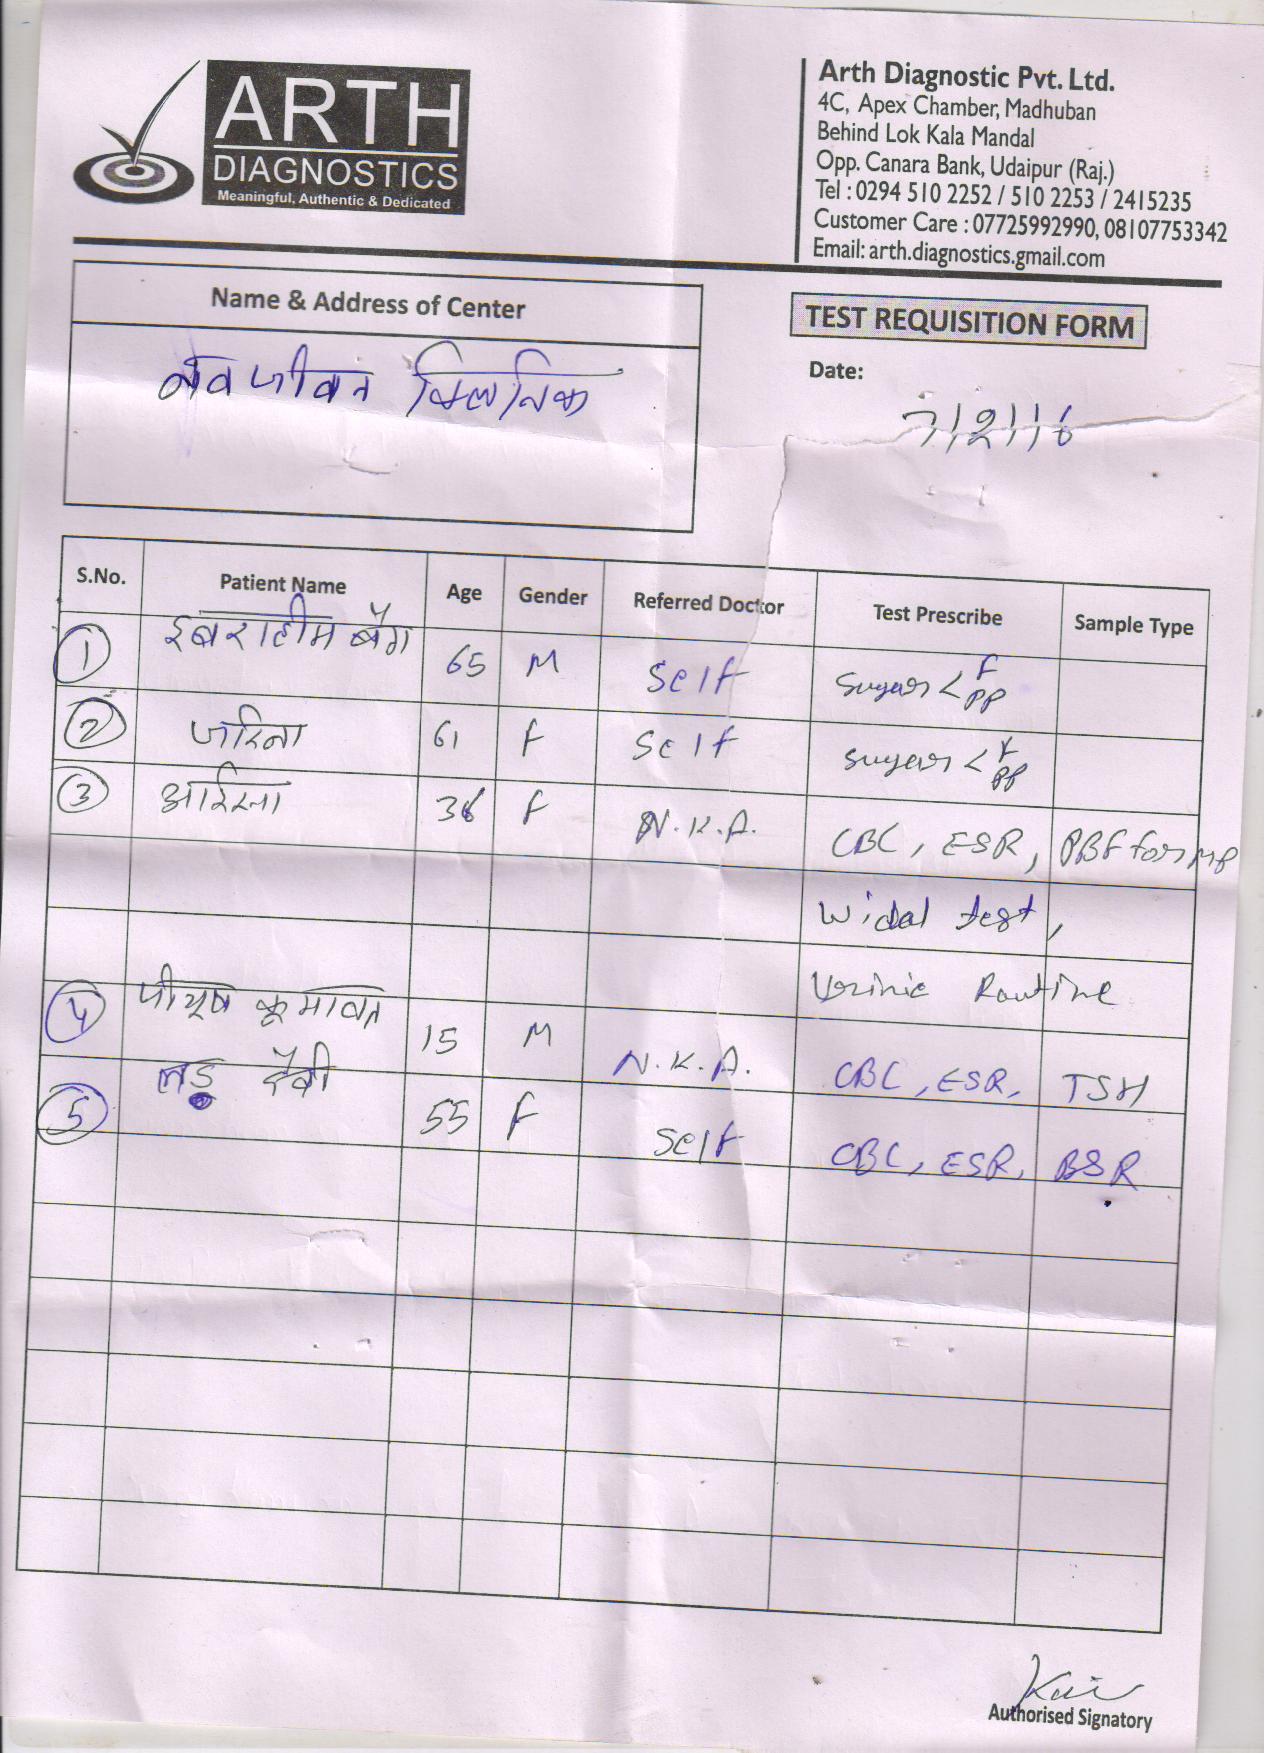 ARTH
DIAGNOSTICS
Meaningful, Authentic & Dedicated
Arth Diagnostic Pvt. Ltd.
4C, Apex Chamber, Madhuban
Behind Lok Kala Mandal
Opp. Canara Bank, Udaipur (Raj.)
Tel : 0294 510 2252 / 510 2253 / 2415235
Customer Care : 07725992990, 08107753342
Email: arth.diagnostics.gmail.com
Name & Address of Center
नवजीवन क्लिनिक
TEST REQUISITION FORM
Date:
7/2/16
S.No. Patient Name Age Gender Referred Doctor Test Prescribe Sample Type
1 इबराहीम बेग 65 M Self Sugar < F PP
2 जरिना 61 F Self Sugar < F PP
3 36 F N.K.A. CBC, ESR, PBF for MP
Widal test,
Urinie Routine
4 पीयूष कुमावत 15 M N.K.A. CBC, ESR, TSH
5 देवी 55 F Self CBC, ESR, BSR
Authorised Signatory